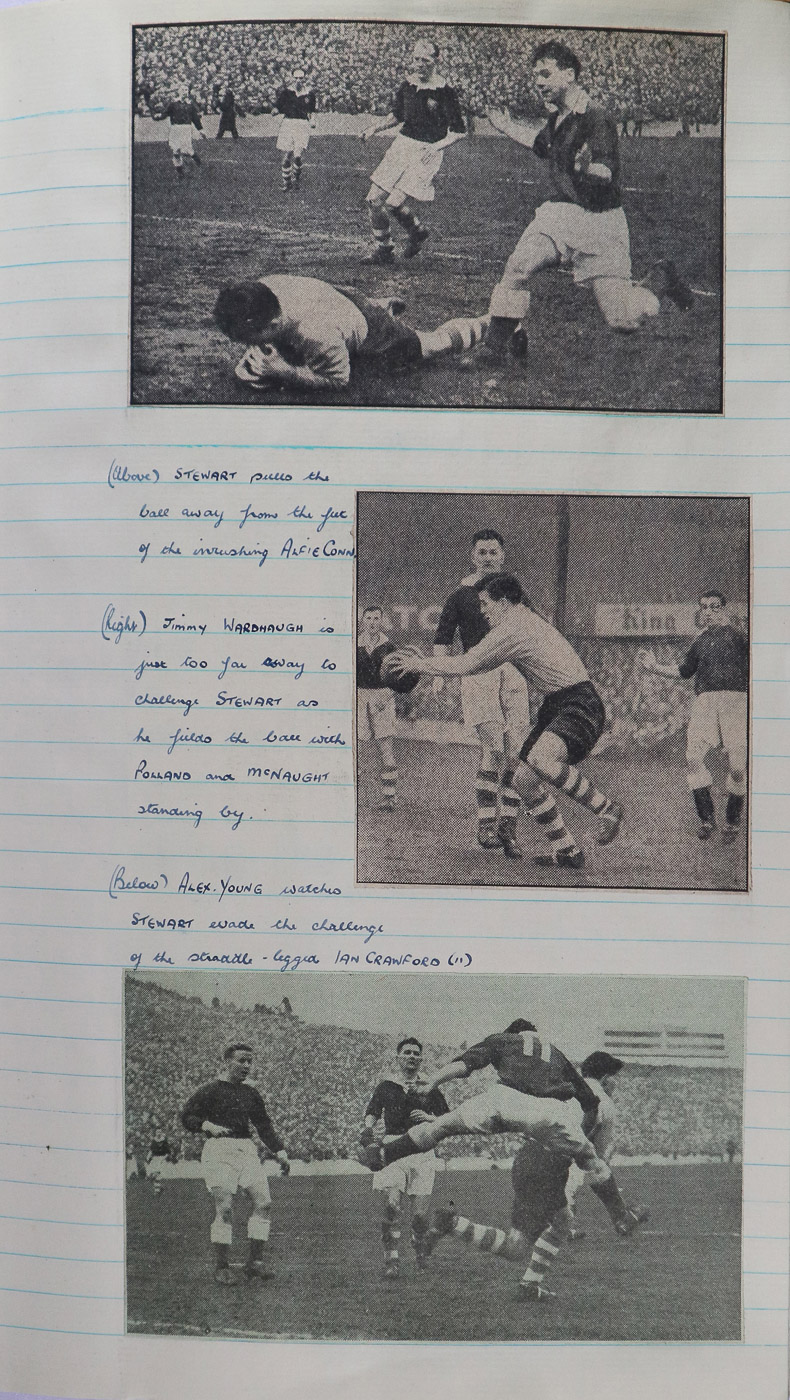 (Above) STEWART pulls the
ball away from the feet
of the inrushing ALFIE CONN.
(Right) Jimmy WARDHAUGH is
just too far away to
challenge STEWART as
he fields the ball with
POLLAND and McNAUGHT
standing by.
King
(Below) ALEX. YOUNG watches
STEWART evade the challenge
of the straddle-legged IAN CRAWFORD (11)
11